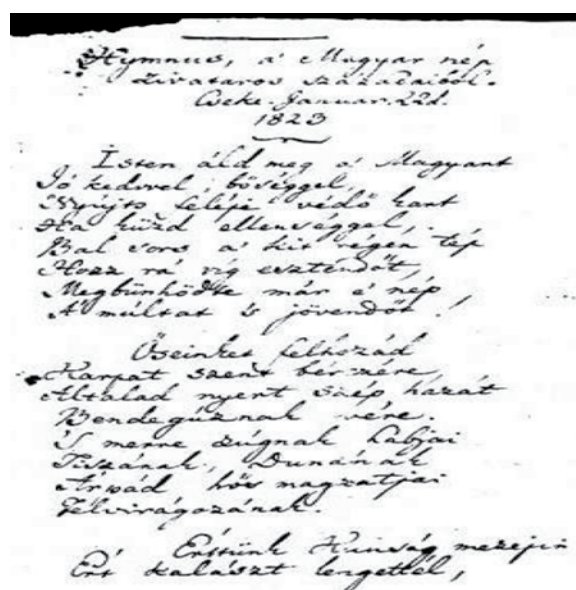 Hymnus, a' Magyar nép
zivataros századaiból.
Cseke. Januar. 22d.
1823
Isten áld meg a' Magyart
Jó kedvvel, bőséggel,
Nyújts feléje védő kart
Ha küzd ellenséggel,
Bal sors a' kit régen tép
Hozz rá víg esztendőt,
Megbűnhödte már e' nép
A' múltat 's jövendőt!
Őseinket felhozád
Kárpát szent bérczére,
Általad nyert szép hazát
Bendegúznak vére.
'S merre zúgnak habjai
Tiszának, Dunának
Árpád hős magzatjai
Felvirágozának.
Értünk Kúnság mezejin
Ért kalászt lengettél,